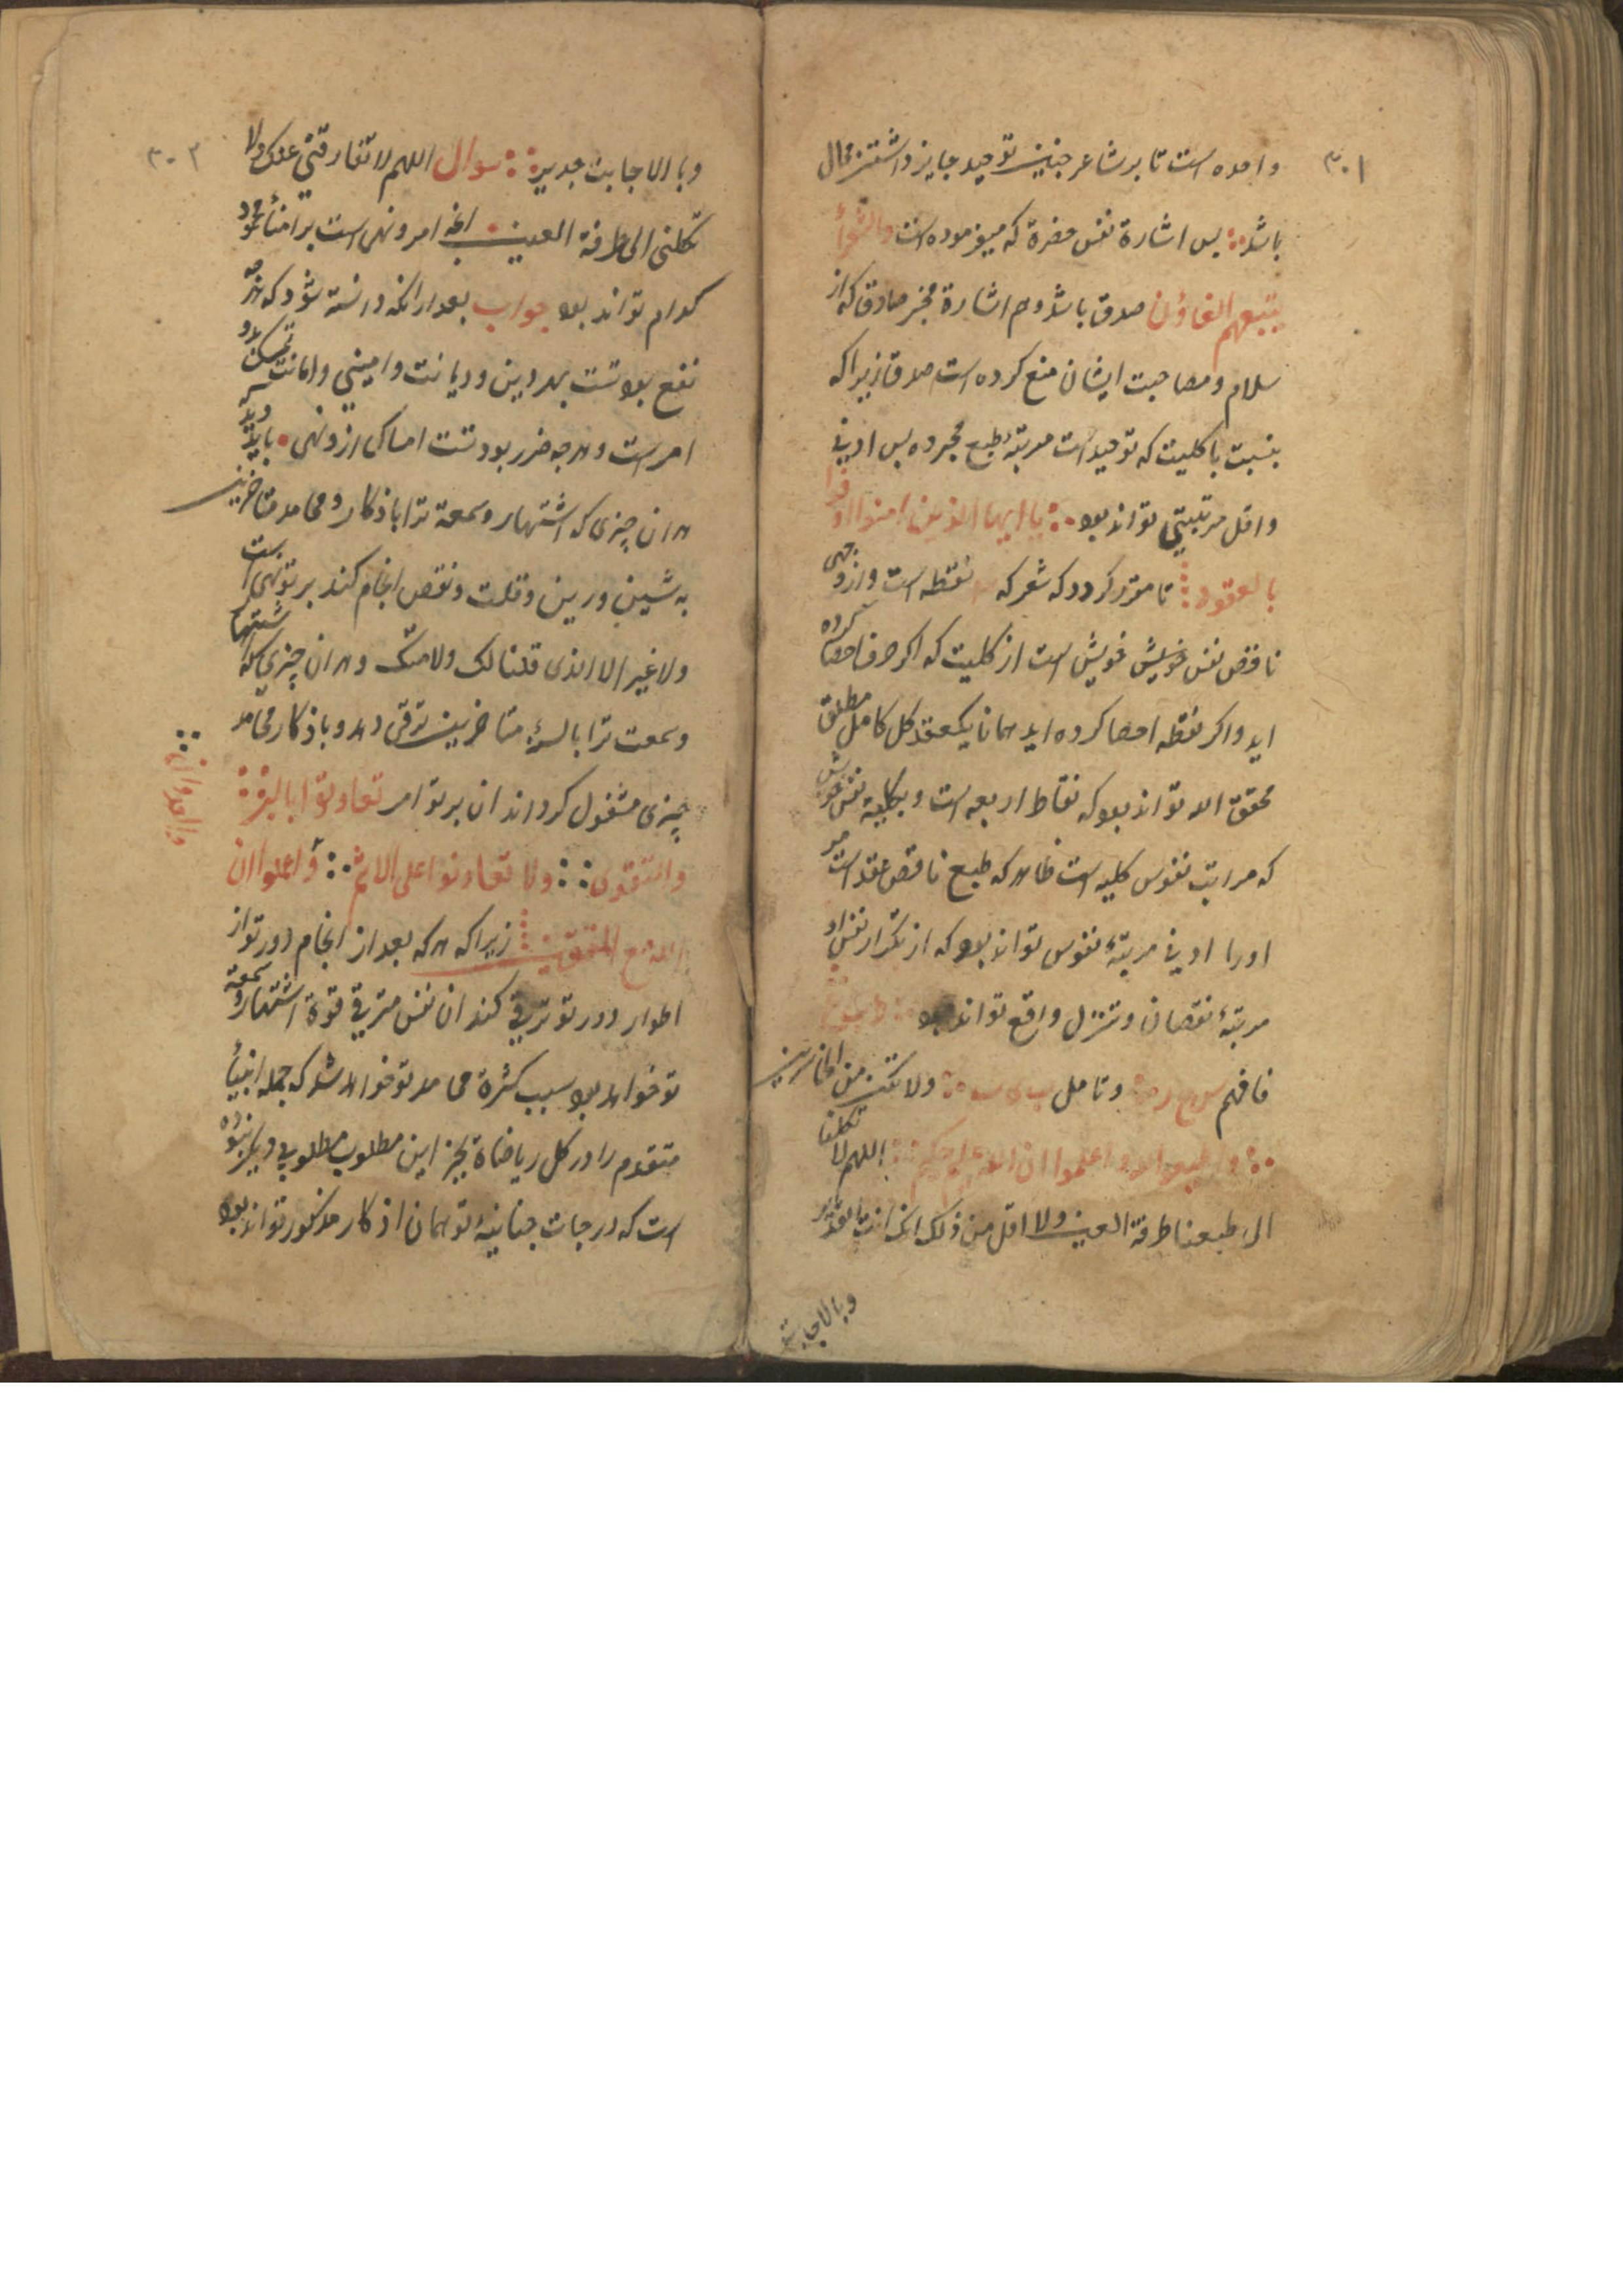 ۳۰۱
واحده است تا بر شاعر چنین توحید جایز داشتن محال
باشد پس اشارة نفس حضرة که میفرموده است والشعرأ
یتبعهم الغاؤن صدق باشد وهم اشارة مخبر صادق که از
سلام و مصاحبت ایشان منع کرده است صدق زیرا که
بنسبت با کلیت که توحید است مرتبۀ طبع مجرده پس ادنی
واقل مرتبتی تواند بود یا ایها الذین امنوا اوفوا
بالعقود تا مقرر کردد که شعر که نقطه است وازوجهی
ناقض نفس خویش خویش است از کلیت که اکر حرف احصا کرده
اید واکر نقطه احصا کرده اید همانا یکعقد کل کامل مطلق
محقق الله تواند بود که نقاط اربعه است و بکلیة نفس خویش
که مراتب نفوس کلیه است ظاهر که طبع ناقص عقد است
اورا ادنی مرتبۀ نفوس تواند بود که از تکرار نفس او
مرتبۀ نقصان و تنزل واقع تواند بود
فافهم وتامل ولا تکن من الخاسرین
واطیعوا الله واعلموا ان الله علیم حکیم اللهم لا تکلنا
الی طبعنا طرفة العین ولا اقل من ذلک انک انت بالقدیر
وبالاجابة
۳۰۲
وبالاجابت جدیر سوال اللهم لا تفارقنی عنک ولا
تکلنی الی طرفة العین امر ونهی است بر امنأ
کدام تواند بود جواب بعد ازانکه دانسته شود که هرچه
نفع بودتست بهر دین ودیانت وامینی وامانت تمسک بدو
امر است وهرچه ضرر بودتست امساک ازو نهی باید دید
هر ان چیزی که اشتهار وسمعة ترا باذکار ومحامد متاخرین
به شین ورین وقلت ونقص انجام کند بر تو نهی است
ولا غیر الا الذی قلنا لک ولا منک وهر ان چیزی که اشتهار
وسمعت ترا بالسنۀ متاخرین ترقی دهد وباذکار محامد
چیزی مشغول کرداند ان بر تو امر تعاونوا بالبر
والتقوی ولا تعاونوا علی الاثم واعلموا ان
والعدوان
الله مع المتقین زیرا که هرکه بعد از انجام دور تو از
اطوار دور تو ترقی کند ان نفس مترقی قوة اشتهار وسمعة
تو خواهد بود سبب کثرة محامد تو خواهد شد که جمله انبیأ
متقدم را در کل ریاضاة بجز این مطلوب مطلوبی دیکر نبوده
است که درجات جنانیۀ تو همان اذکار مذکور تواند بود